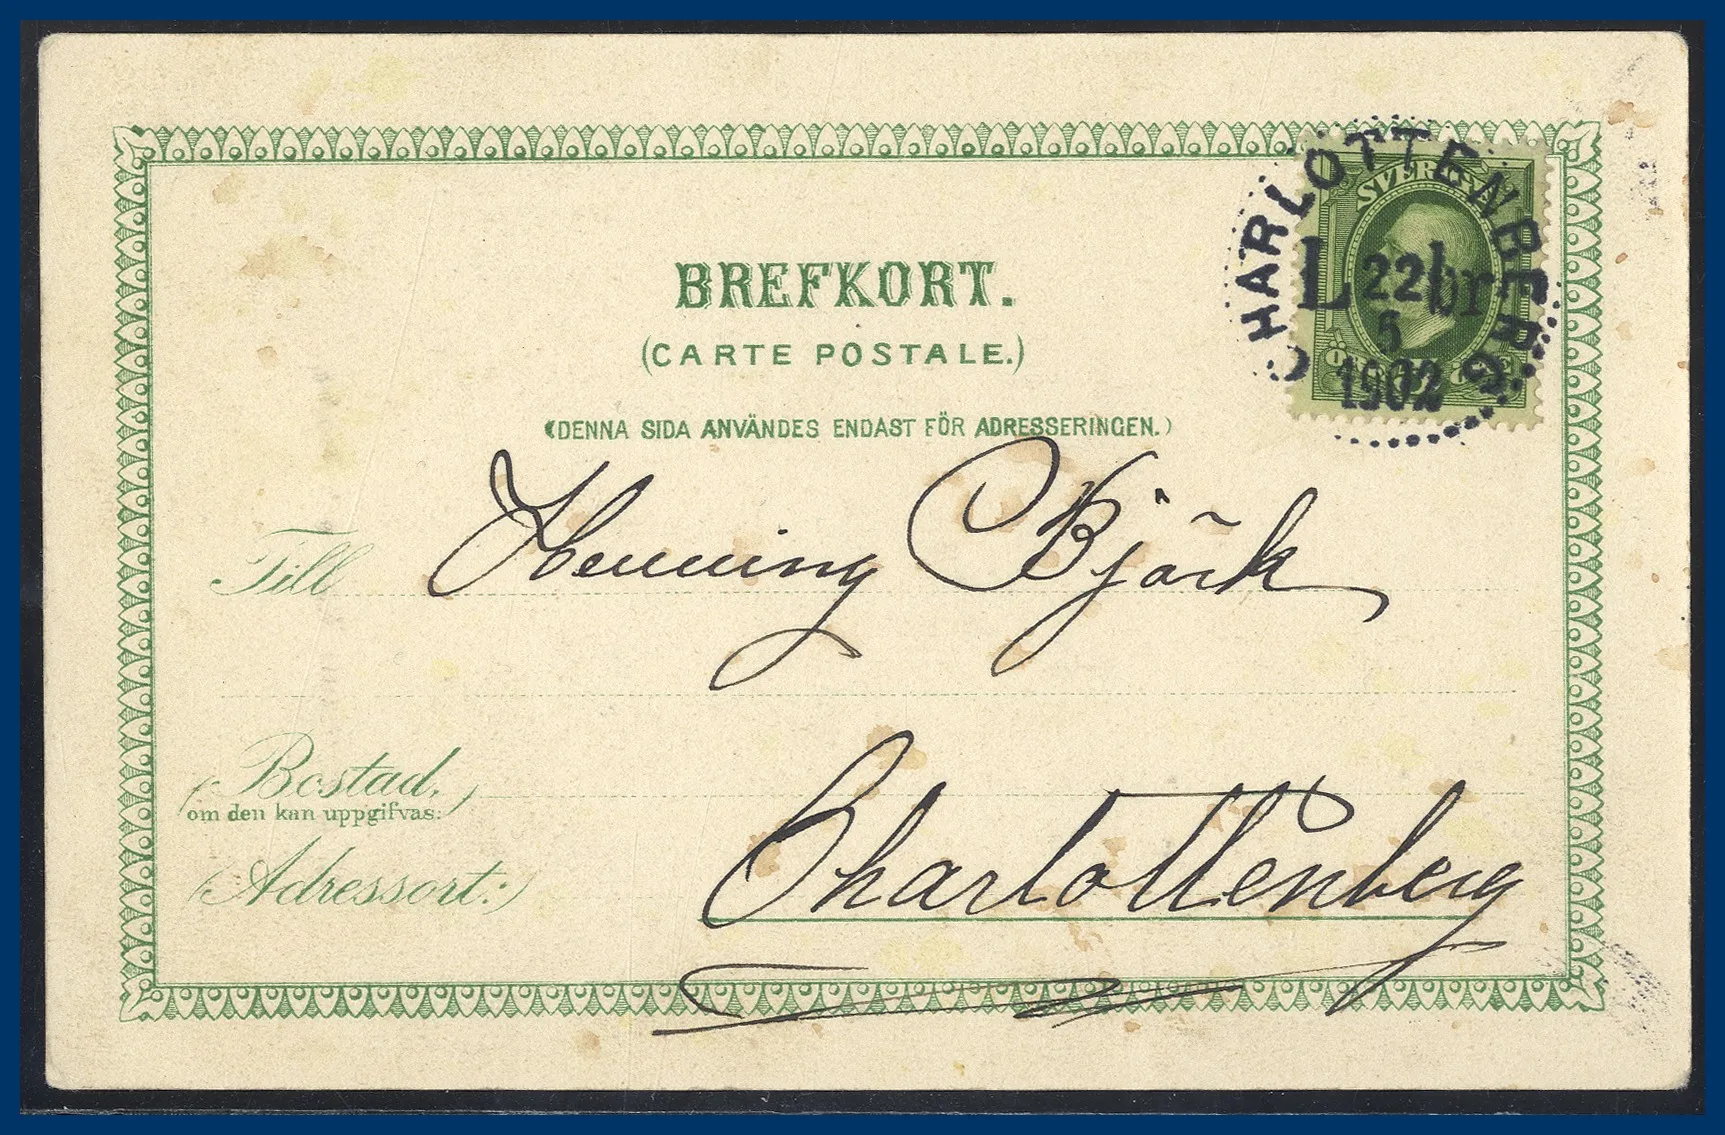 BREFKORT.
(CARTE POSTALE.)
(DENNA SIDA ANVÄNDES ENDAST FÖR ADRESSERINGEN.)
SVERIGE
CHARLOTTENBERG
L 22 br
5
1902
Till Henning Björk
(Bostad,
om den kan uppgifvas:)
(Adressort:) Charlottenberg